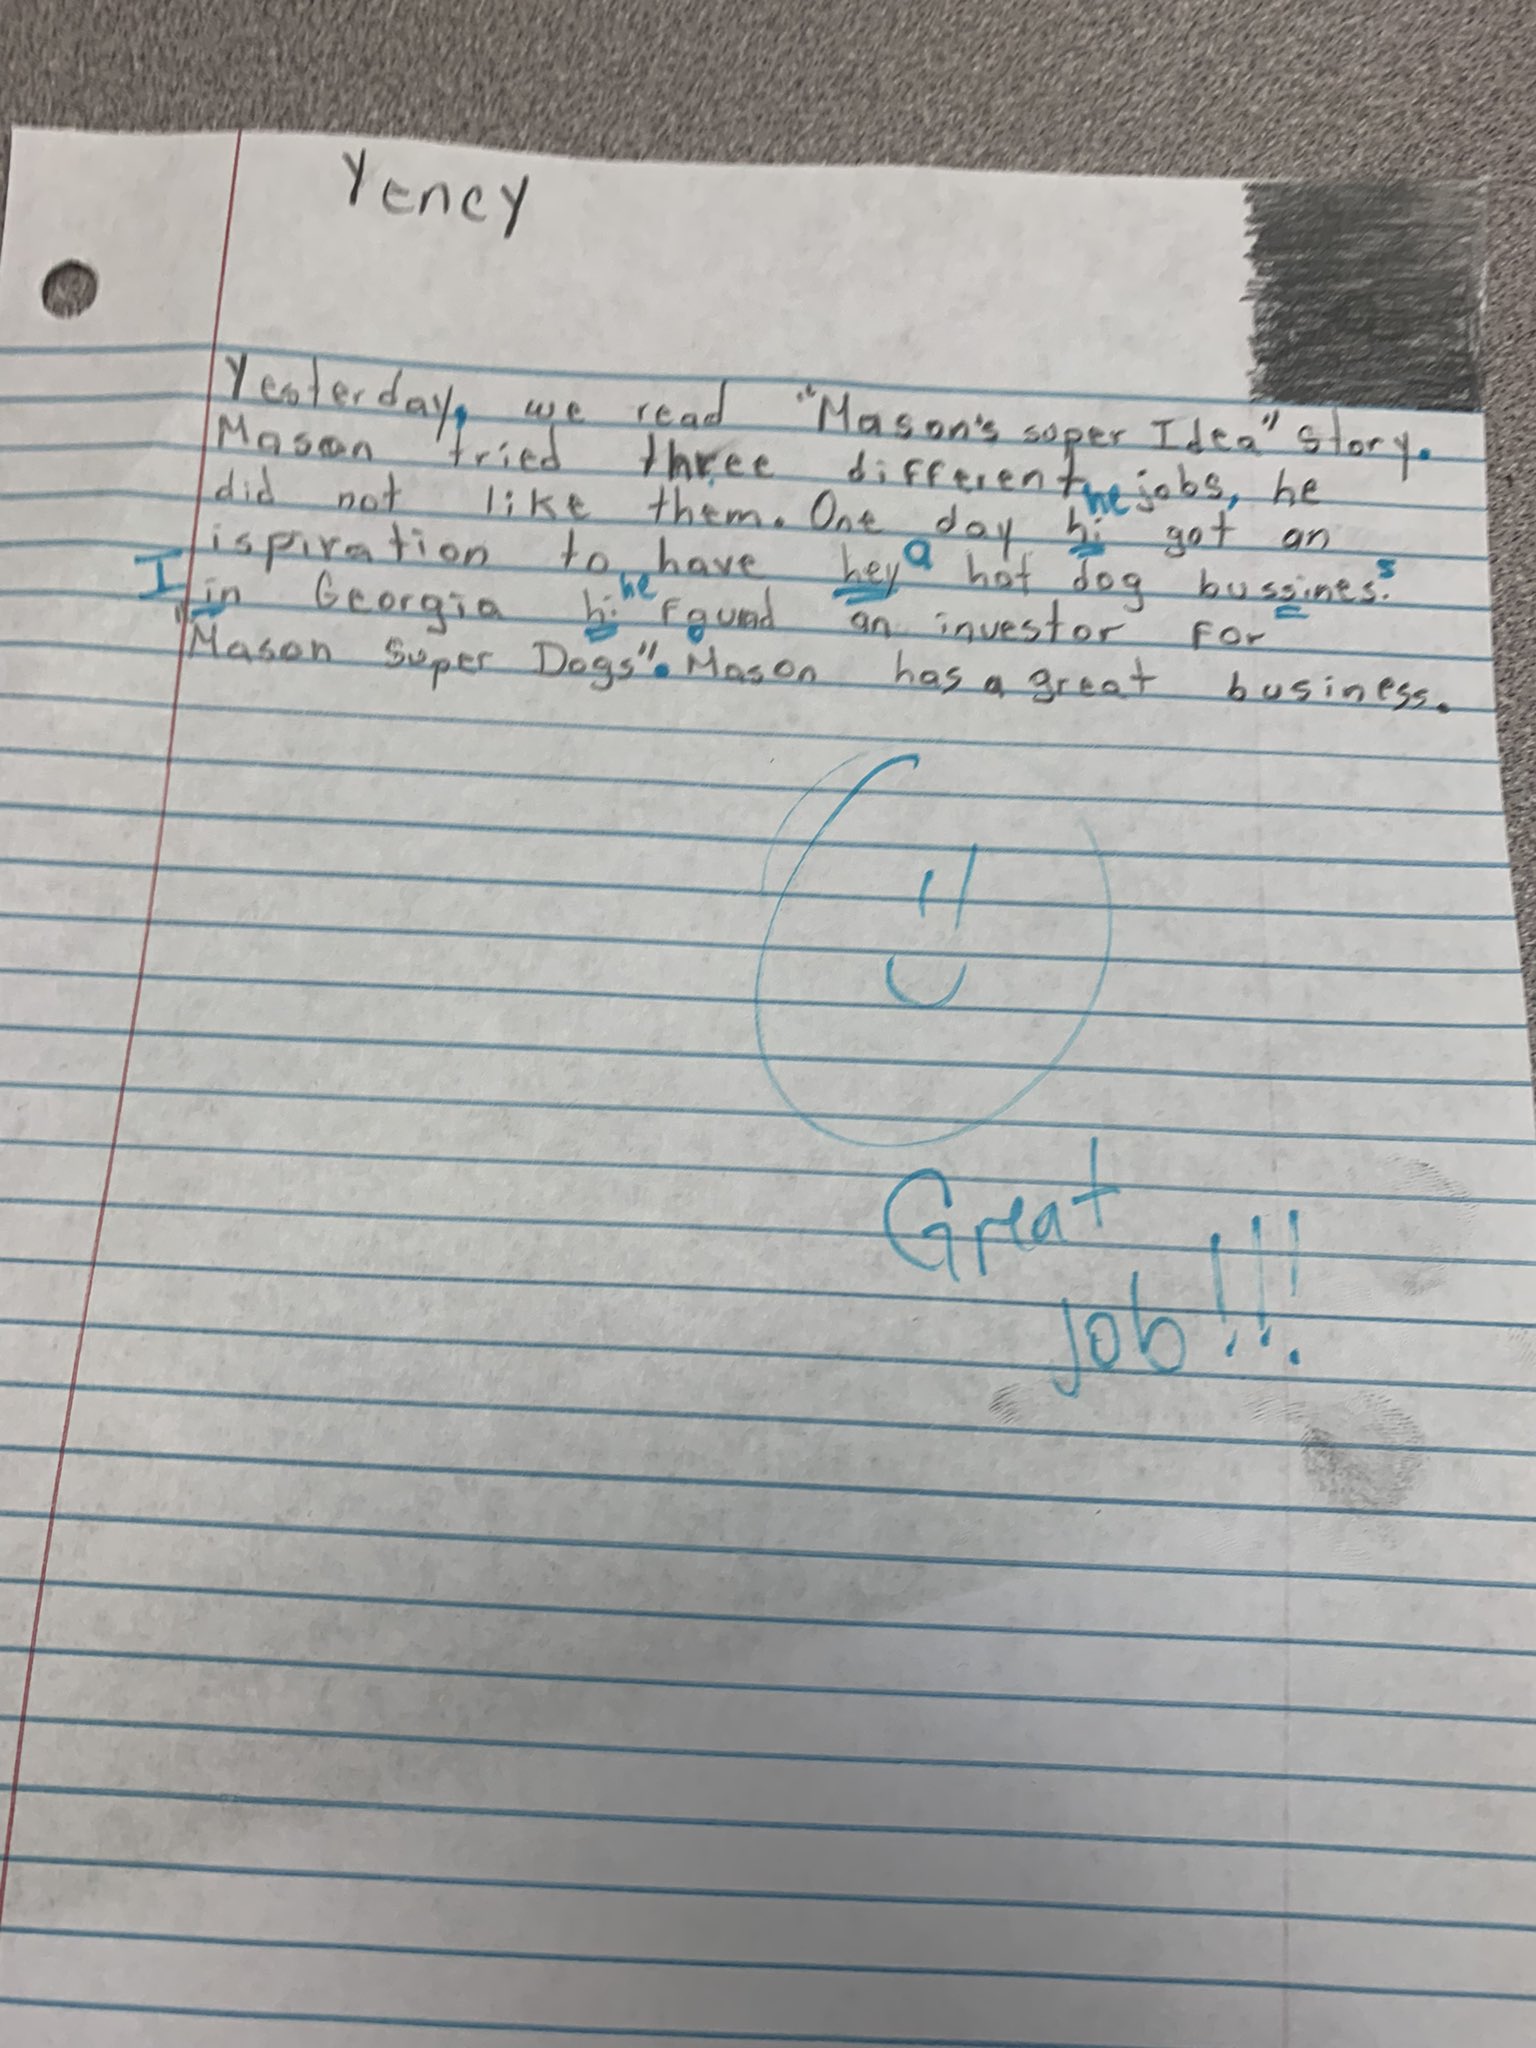 Yency
Yesterday, we read "Mason's super Idea" story.
Mason tried three different jobs, he
he
did not like them. One day hi got an
a
s
ispiration to have hey hot dog bussines.
I
he
in Georgia hi found an investor for
"Mason Super Dogs". Mason has a great business.
Great
job!!!